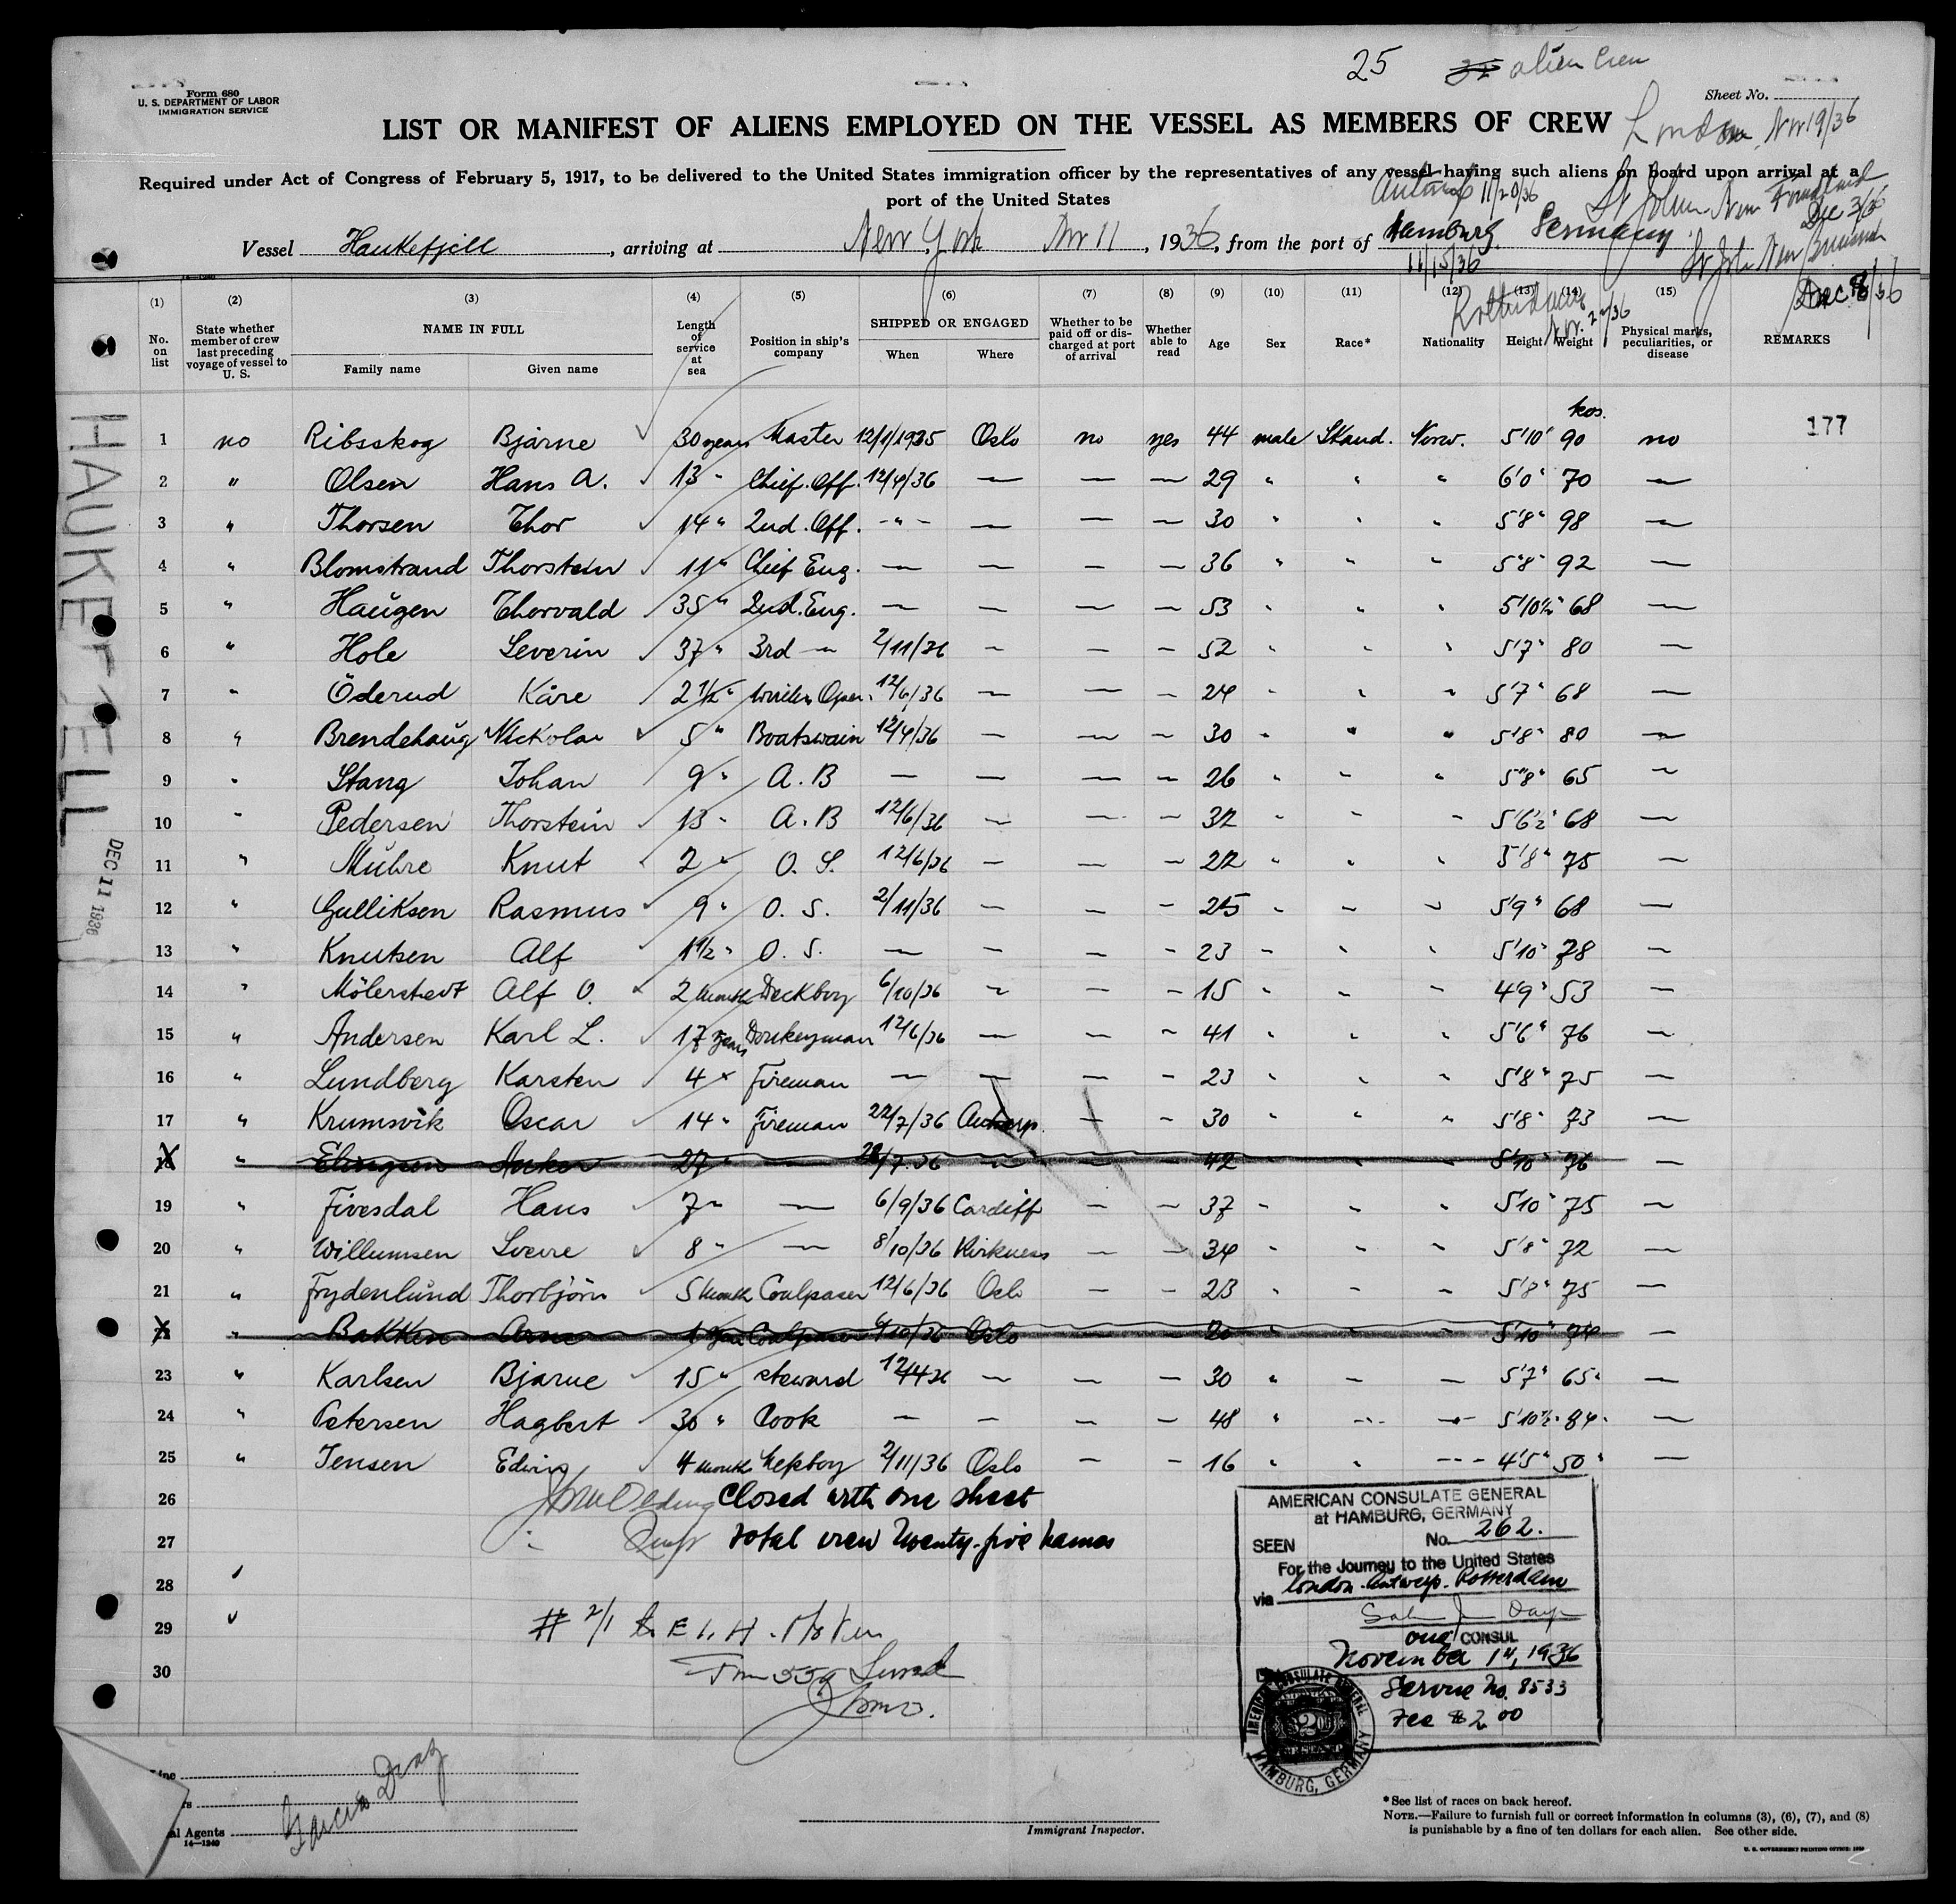 25 alien Crew
Form 680
U. S. DEPARTMENT OF LABOR
IMMIGRATION SERVICE
Sheet No.
LIST OR MANIFEST OF ALIENS EMPLOYED ON THE VESSEL AS MEMBERS OF CREW
London, Nov 19/36
Required under Act of Congress of February 5, 1917, to be delivered to the United States immigration officer by the representatives of any vessel having such aliens on board upon arrival at a
port of the United States
Antwerp 11/20/36
St John New Foundland
Dec 3/36
Vessel Haukefjell, arriving at New York Nov 11, 1936, from the port of Hamburg Germany
11/15/36
St John New Brunswick
Dec 8/36
Rotterdam Nov. 2 /36
(1) (2) (3) (4) (5) (6) (7) (8) (9) (10) (11) (12) (13) (14) (15)
No. on list
State whether member of crew last preceding voyage of vessel to U. S.
NAME IN FULL
Family name Given name
Length of service at sea
Position in ship's company
SHIPPED OR ENGAGED
When Where
Whether to be paid off or discharged at port of arrival
Whether able to read
Age
Sex
Race*
Nationality
Height
Weight
Physical marks, peculiarities, or disease
REMARKS
kos.
1 no Ribsskog Bjarne 30 years Master 12/1/1935 Oslo no yes 44 male Skand. Norw. 5'10" 90 no 177
2 " Olsen Hans A. 13 " Chief. Off. 12/4/36 — — — 29 " " " 6'0" 70 —
3 " Thorsen Thor 14 " 2nd. Off. - " - — — — 30 " " " 5'8" 98 —
4 " Blomstrand Thorstein 11 " Chief Eng. — — — — 36 " " " 5'8" 92 —
5 " Haugen Thorvald 35 " 2nd. Eng. — — — — 53 " " " 5'10½" 68 —
6 " Hole Severin 37 " 3rd — 2/11/36 — — — 52 " " " 5'7" 80 —
7 " Öderud Kåre 2 1/2 " Wireless Oper. 12/6/36 — — — 24 " " " 5'7" 68 —
8 " Brendehaug Nickolai 5 " Boatswain 12/4/36 — — — 30 " " " 5'8" 80 —
9 " Stang Johan 9 " A. B — — — — 26 " " " 5'8" 65 —
10 " Pedersen Thorstein 13 " A. B 12/6/36 — — — 32 " " " 5'6½" 68 —
11 " Muhre Knut 2 " O. S. 12/6/36 — — — 22 " " " 5'8" 75 —
12 " Gulliksen Rasmus 9 " O. S. 2/11/36 — — — 25 " " " 5'9" 68 —
13 " Knutsen Alf 1 1/2 " O. S. — — — — 23 " " " 5'10" 78 —
14 " Mölerstedt Alf O. 2 month Deckboy 6/10/36 — — — 15 " " " 4'9" 53 —
15 " Andersen Karl L. 17 years Donkeyman 12/6/36 — — — 41 " " " 5'6" 76 —
16 " Lundberg Karsten 4 " Fireman — — — — 23 " " " 5'8" 75 —
17 " Krumsvik Oscar 14 " Fireman 22/7/36 Antwerp. — — 30 " " " 5'8" 73 —
18 " Elingsen Anker 27 " — 28/7.36 — — — 42 " " " 5'10" 76 —
19 " Fivesdal Hans 7 " — 6/9/36 Cardiff — — 37 " " " 5'10" 75 —
20 " Willumsen Sverre 8 " — 8/10/36 Kirkness — — 34 " " " 5'8" 72 —
21 " Frydenlund Thorbjörn 5 month Coalpaser 12/6/36 Oslo — — 23 " " " 5'8" 75 —
22 " Bakken Arne 1 year Coalpaser 6/10/36 Oslo — — 20 " " " 5'10" 74 —
23 " Karlsen Bjarne 15 " steward 12/4 36 — — — 30 " — — 5'7" 65 —
24 " Petersen Hagbert 30 " Cook — — — — 48 " — — 5'10½" 84 —
25 " Jensen Edvin 4 month Messboy 2/11/36 Oslo — — 16 " " — 4'5" 50 —
26 Closed with one sheet
27 Total crew Twenty-five names
28
29
30
HAUKEFJELL
DEC 11 1936
AMERICAN CONSULATE GENERAL
at HAMBURG, GERMANY
SEEN No. 262.
For the Journey to the United States
via London-Antwerp-Rotterdam
CONSUL
November 14, 1936
Service No. 8533
Fee $2.00
AMERICAN CONSULATE GENERAL
HAMBURG, GERMANY
Garcia Diaz
Agents
14—1240
Immigrant Inspector.
*See list of races on back hereof.
NOTE.—Failure to furnish full or correct information in columns (3), (6), (7), and (8)
is punishable by a fine of ten dollars for each alien. See other side.
U. S. GOVERNMENT PRINTING OFFICE: